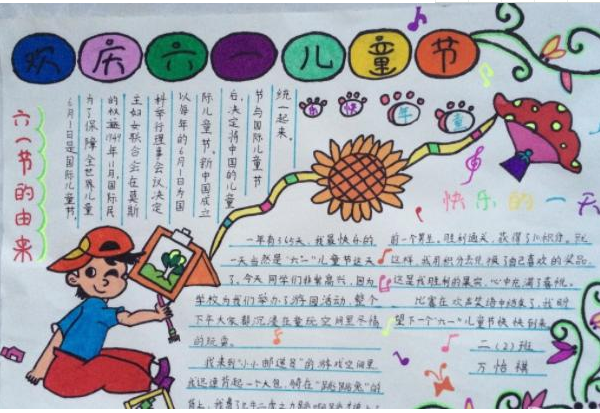 欢庆六一儿童节
六一节的由来
6月1日是国际儿童节,
为了保障全世界儿童
的权益1949年11月,国际民
主妇女联合会在莫斯
科举行理事会议决定
以每年的6月1日为国
际儿童节。新中国成立
后,决定将中国的儿童
节与国际儿童节
统一起来。
快 年 童
快乐的一天
一年有365天,我最快乐的
一天当然是“六一”儿童节这天
了。今天同学们非常高兴,因为
学校为我们举办了游园活动,整个
下午大家都沉浸在童玩空间里尽情
的玩耍。
我来到“小小邮递员”的游戏空间里
我迅速背起一个大包,骑在“跳跳兔”的
背上,我费了九牛二虎之力跳啊跳
前一个男生,胜利通关,获得了10积分。就
这样,我用积分去兑换了自己喜欢的奖品
这是我胜利的果实,心中充满了喜悦。
比赛在欢声笑语中结束了,我盼
望下一个“六一”儿童节快快到来
二(2)班
万怡棋